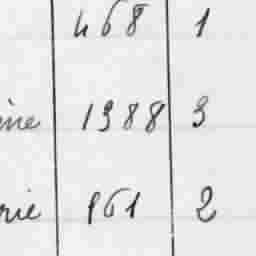 468 1
ine 1988 3
rie 961 2